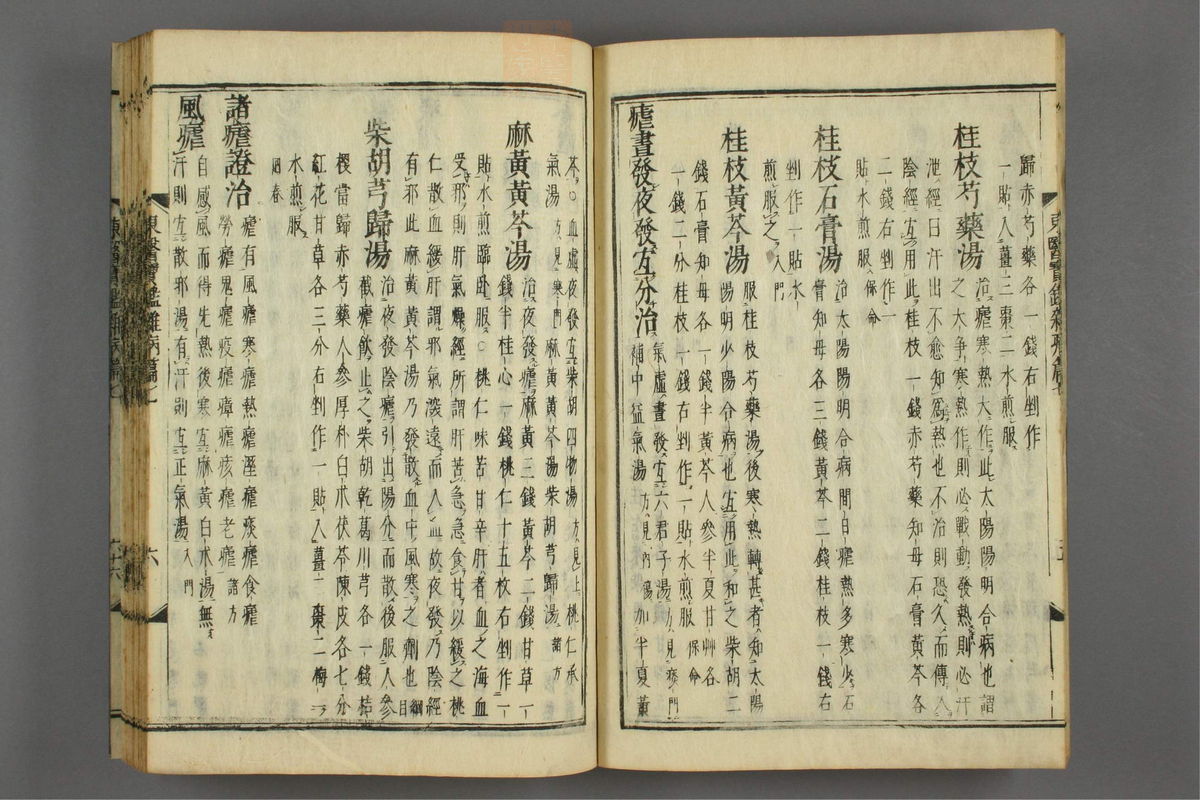 東醫寶鑑雜病篇七
歸赤芍藥各一錢右剉作
一貼入薑三棗二水煎服
桂枝芍藥湯治瘧寒熱大作此太陽陽明合病也謂
之大爭寒熱作則必戰動發熱則必汗
泄經曰汗出不愈知爲熱也不治則恐久而傳入
陰經宜用此桂枝一錢赤芍藥知母石膏黃芩各
二錢右剉作一
貼水煎服保命
桂枝石膏湯治太陽陽明合病間日瘧熱多寒少石
膏知母各三錢黃芩二錢桂枝一錢右
剉作一貼水
煎服之入門
桂枝黃芩湯服桂枝芍藥湯後寒熱轉甚者知太陽
陽明少陽合病也宜用此和之柴胡二
錢石膏知母各一錢半黃芩人參半夏甘艸各
一錢二分桂枝一錢右剉作一貼水煎服保命
瘧晝發夜發宜分治氣虛晝發宜六君子湯方見痰門
補中益氣湯方見內傷加半夏黃
芩○血虛夜發宜柴胡四物湯方見上桃仁承
氣湯方見寒門麻黃黃芩湯柴胡芎歸湯諸方
麻黃黃芩湯治夜發瘧麻黃三錢黃芩二錢甘草一
錢半桂心一錢桃仁十五枚右剉作一
貼水煎臨臥服○桃仁味苦甘辛肝者血之海血
受邪則肝氣燥經所謂肝苦急急食甘以緩之桃
仁散血緩肝謂邪氣深遠而入血故夜發乃陰經
有邪此麻黃黃芩湯乃發散血中風寒之劑也綱目
柴胡芎歸湯治夜發陰瘧引出陽分而散後服人參
截瘧飮止之柴胡乾葛川芎各一錢桔
梗當歸赤芍藥人參厚朴白朮茯苓陳皮各七分
紅花甘草各三分右剉作一貼入薑二棗二梅一
水煎服
回春
諸瘧證治瘧有風瘧寒瘧熱瘧濕瘧痰瘧食瘧
勞瘧鬼瘧疫瘧瘴瘧痎瘧老瘧諸方
風瘧自感風而得先熱後寒宜麻黃白朮湯無
汗則宜散邪湯有汗則宜正氣湯入門
東醫寶鑑雜病篇七
六